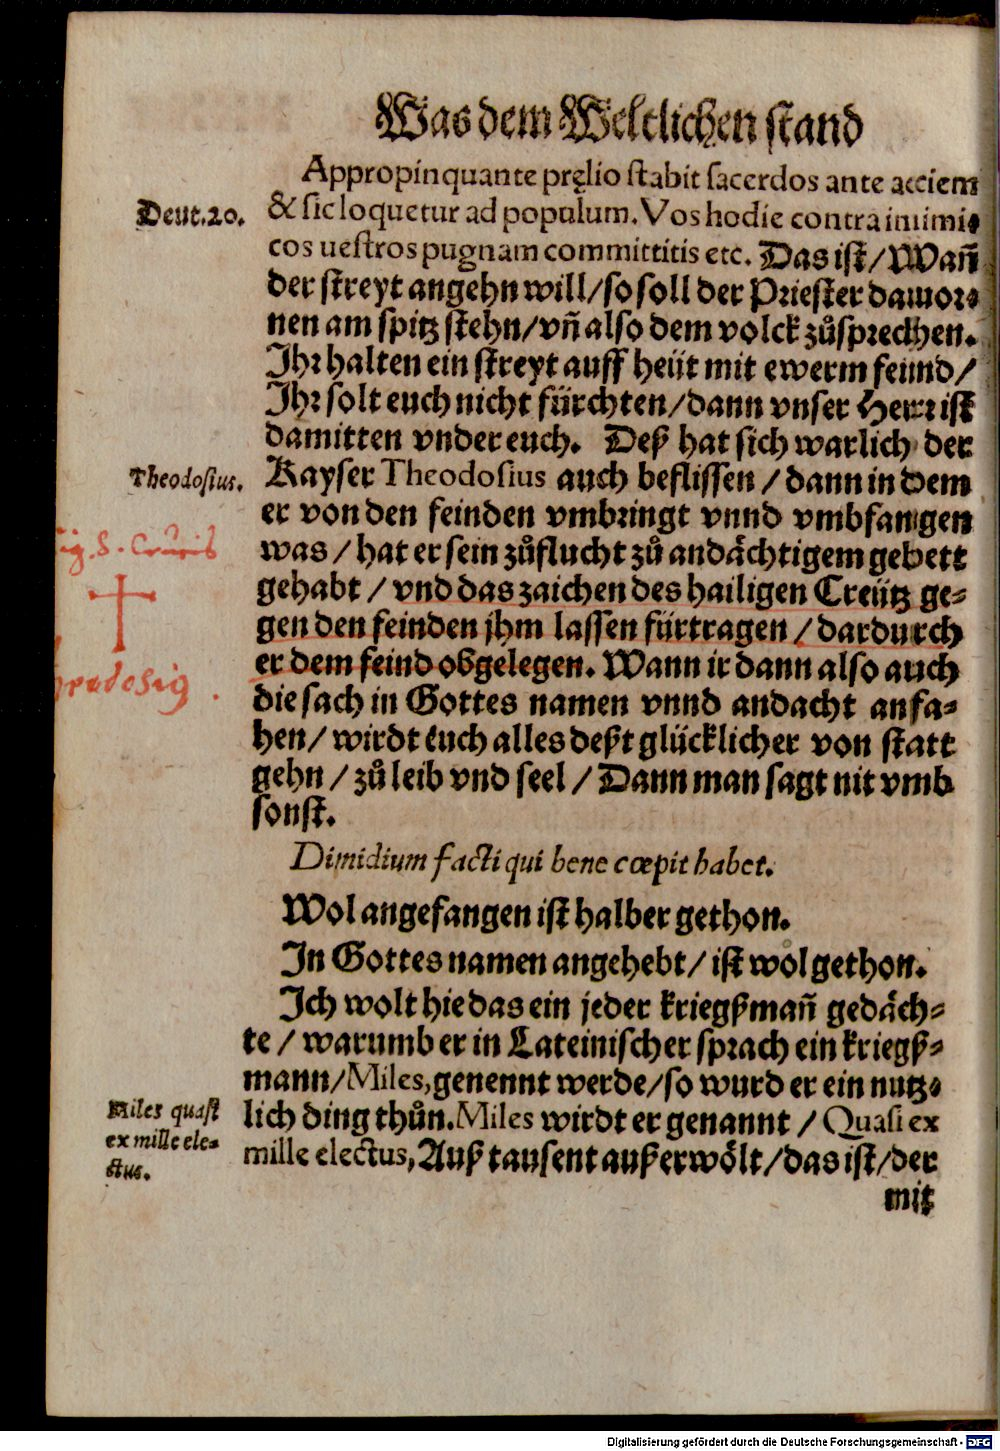 Was dem Weltlichen stand
Appropinquante pręlio stabit sacerdos ante acciem
Deut.20.
& sic loquetur ad populum. Vos hodie contra inimi-
cos uestros pugnam committitis etc. Das ist/ Wañ
der streyt angehn will/ so soll der Priester dauor-
nen am spitz stehn/ vñ also dem volck zůsprechen.
Ihr halten ein streyt auff heüt mit ewerm feund/
Ihr solt euch nicht fürchten/ dann vnser Herr ist
damitten vnder euch. Deß hat sich warlich der
Theodosius.
Kayser Theodosius auch beflissen / dann in dem
er von den feinden vmbringt vnnd vmbfangen
Sig. S. Crucis
was / hat er sein zůflucht zů andächtigem gebett
gehabt / vnd das zaichen des hailigen Creütz ge-
gen den feinden jhm lassen fürtragen / dardurch
er dem feind obgelegen. Wann ir dann also auch
die sach in Gottes namen vnnd andacht anfa-
hen/ wirdt euch alles deßt glücklicher von statt
gehn / zů leib vnd seel / Dann man sagt nit vmb
sonst.
Dimidium facti qui bene cœpit habet.
Wol angefangen ist halber gethon.
In Gottes namen angehebt/ ist wol gethon.
Ich wolt hie das ein jeder kriegßmañ gedäch-
te / warumb er in Lateinischer sprach ein kriegß-
mann/ Miles, genennt werde/ so wurd er ein nutz-
Miles quasi
ex mille ele-
ctus.
lich ding thůn. Miles wirdt er genannt / Quasi ex
mille electus, Auß tausent außerwölt/ das ist/ der
mit
Digitalisierung gefördert durch die Deutsche Forschungsgemeinschaft - DFG